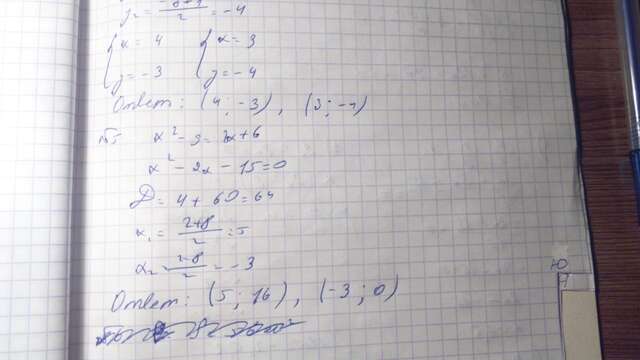 y₂ = -8+9/2 = -4
{ x = 4 { x = 3
{ y = -3 { y = -4
Ответ: (4; -3), (3; -4)
№5 x² - 9 = 2x + 6
x² - 2x - 15 = 0
D = 4 + 60 = 64
x₁ = 2+8/2 = 5
x₂ = 2-8/2 = -3
Ответ: (5; 16), (-3; 0)